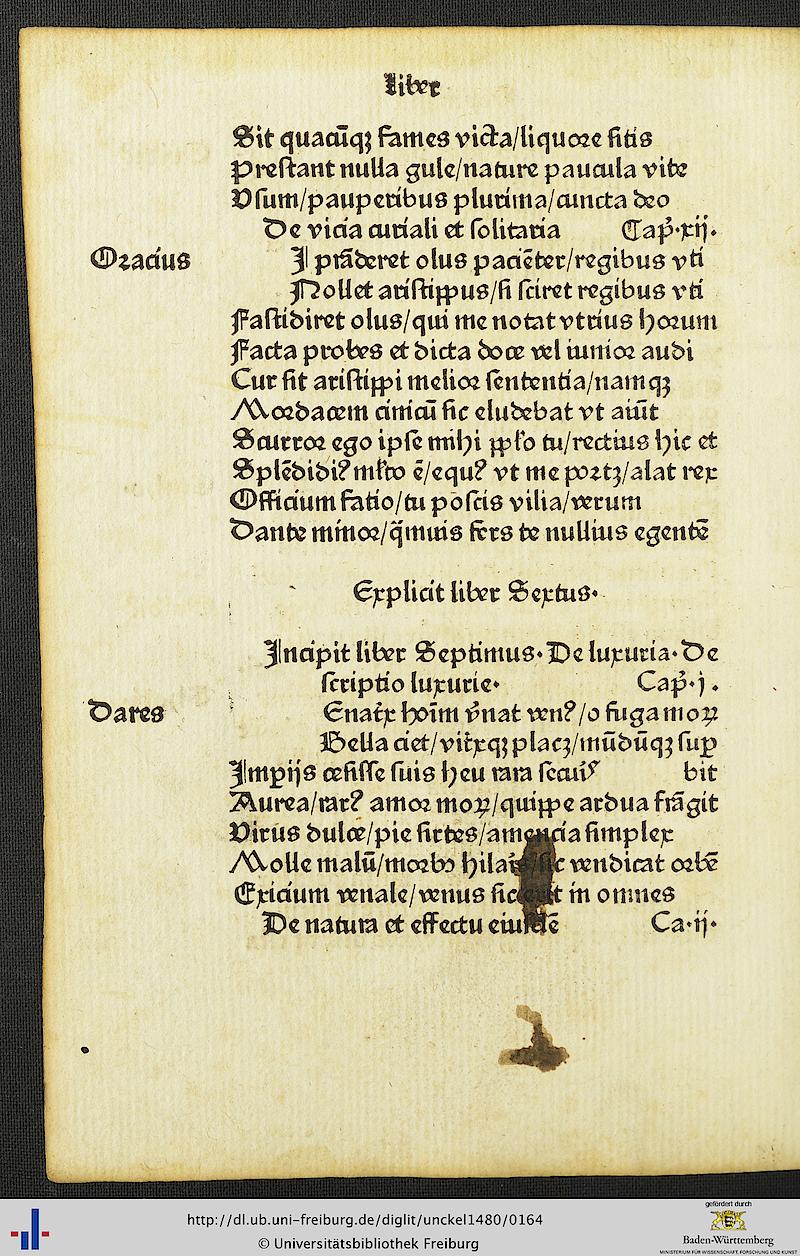 liber
Sit quacūqꝫ fames victa/liquore sitis
Prestant nulla gule/nature paucula vite
Vsum/pauperibus plurima/cuncta deo
De vicia curiali et solitaria Cap̄·xij.
Oracius
I prāderet olus paciēter/regibus vti
Nollet aristippus/si sciret regibus vti
Fastidiret olus/qui me notat vtrius horum
Facta probes et dicta doce vel iunior audi
Cur sit aristippi melior sententia/namqꝫ
Mordacem cinicū sic eludebat vt aiūt
Scurror ego ipse mihi pplo tu/rectius hic et
Splēdidiꝰ mlto ē/equꝰ vt me portꝫ/alat rex
Officium facio/tu poscis vilia/verum
Dante minor/q̄muis fers te nullius egentē
Explicit liber Sextus·
Incipit liber Septimus· De luxuria· De
scriptio luxurie· Cap̄·j.
Dares
Bella ciet/ placꝫ/mūdūqꝫ sup
Impijs cesisse suis heu rara bit
Aurea/rarꝰ amor moꝝ/quippe ardua frāgit
Virus dulce/pie sirtes/amencia simplex
Molle malū/morbo vendicat orbē
Exicium venale/venus in omnes
De natura et effectu eiusdē Ca·ij·
http://dl.ub.uni-freiburg.de/diglit/unckel1480/0164
© Universitätsbibliothek Freiburg
gefördert durch
Baden-Württemberg
MINISTERIUM FÜR WISSENSCHAFT, FORSCHUNG UND KUNST